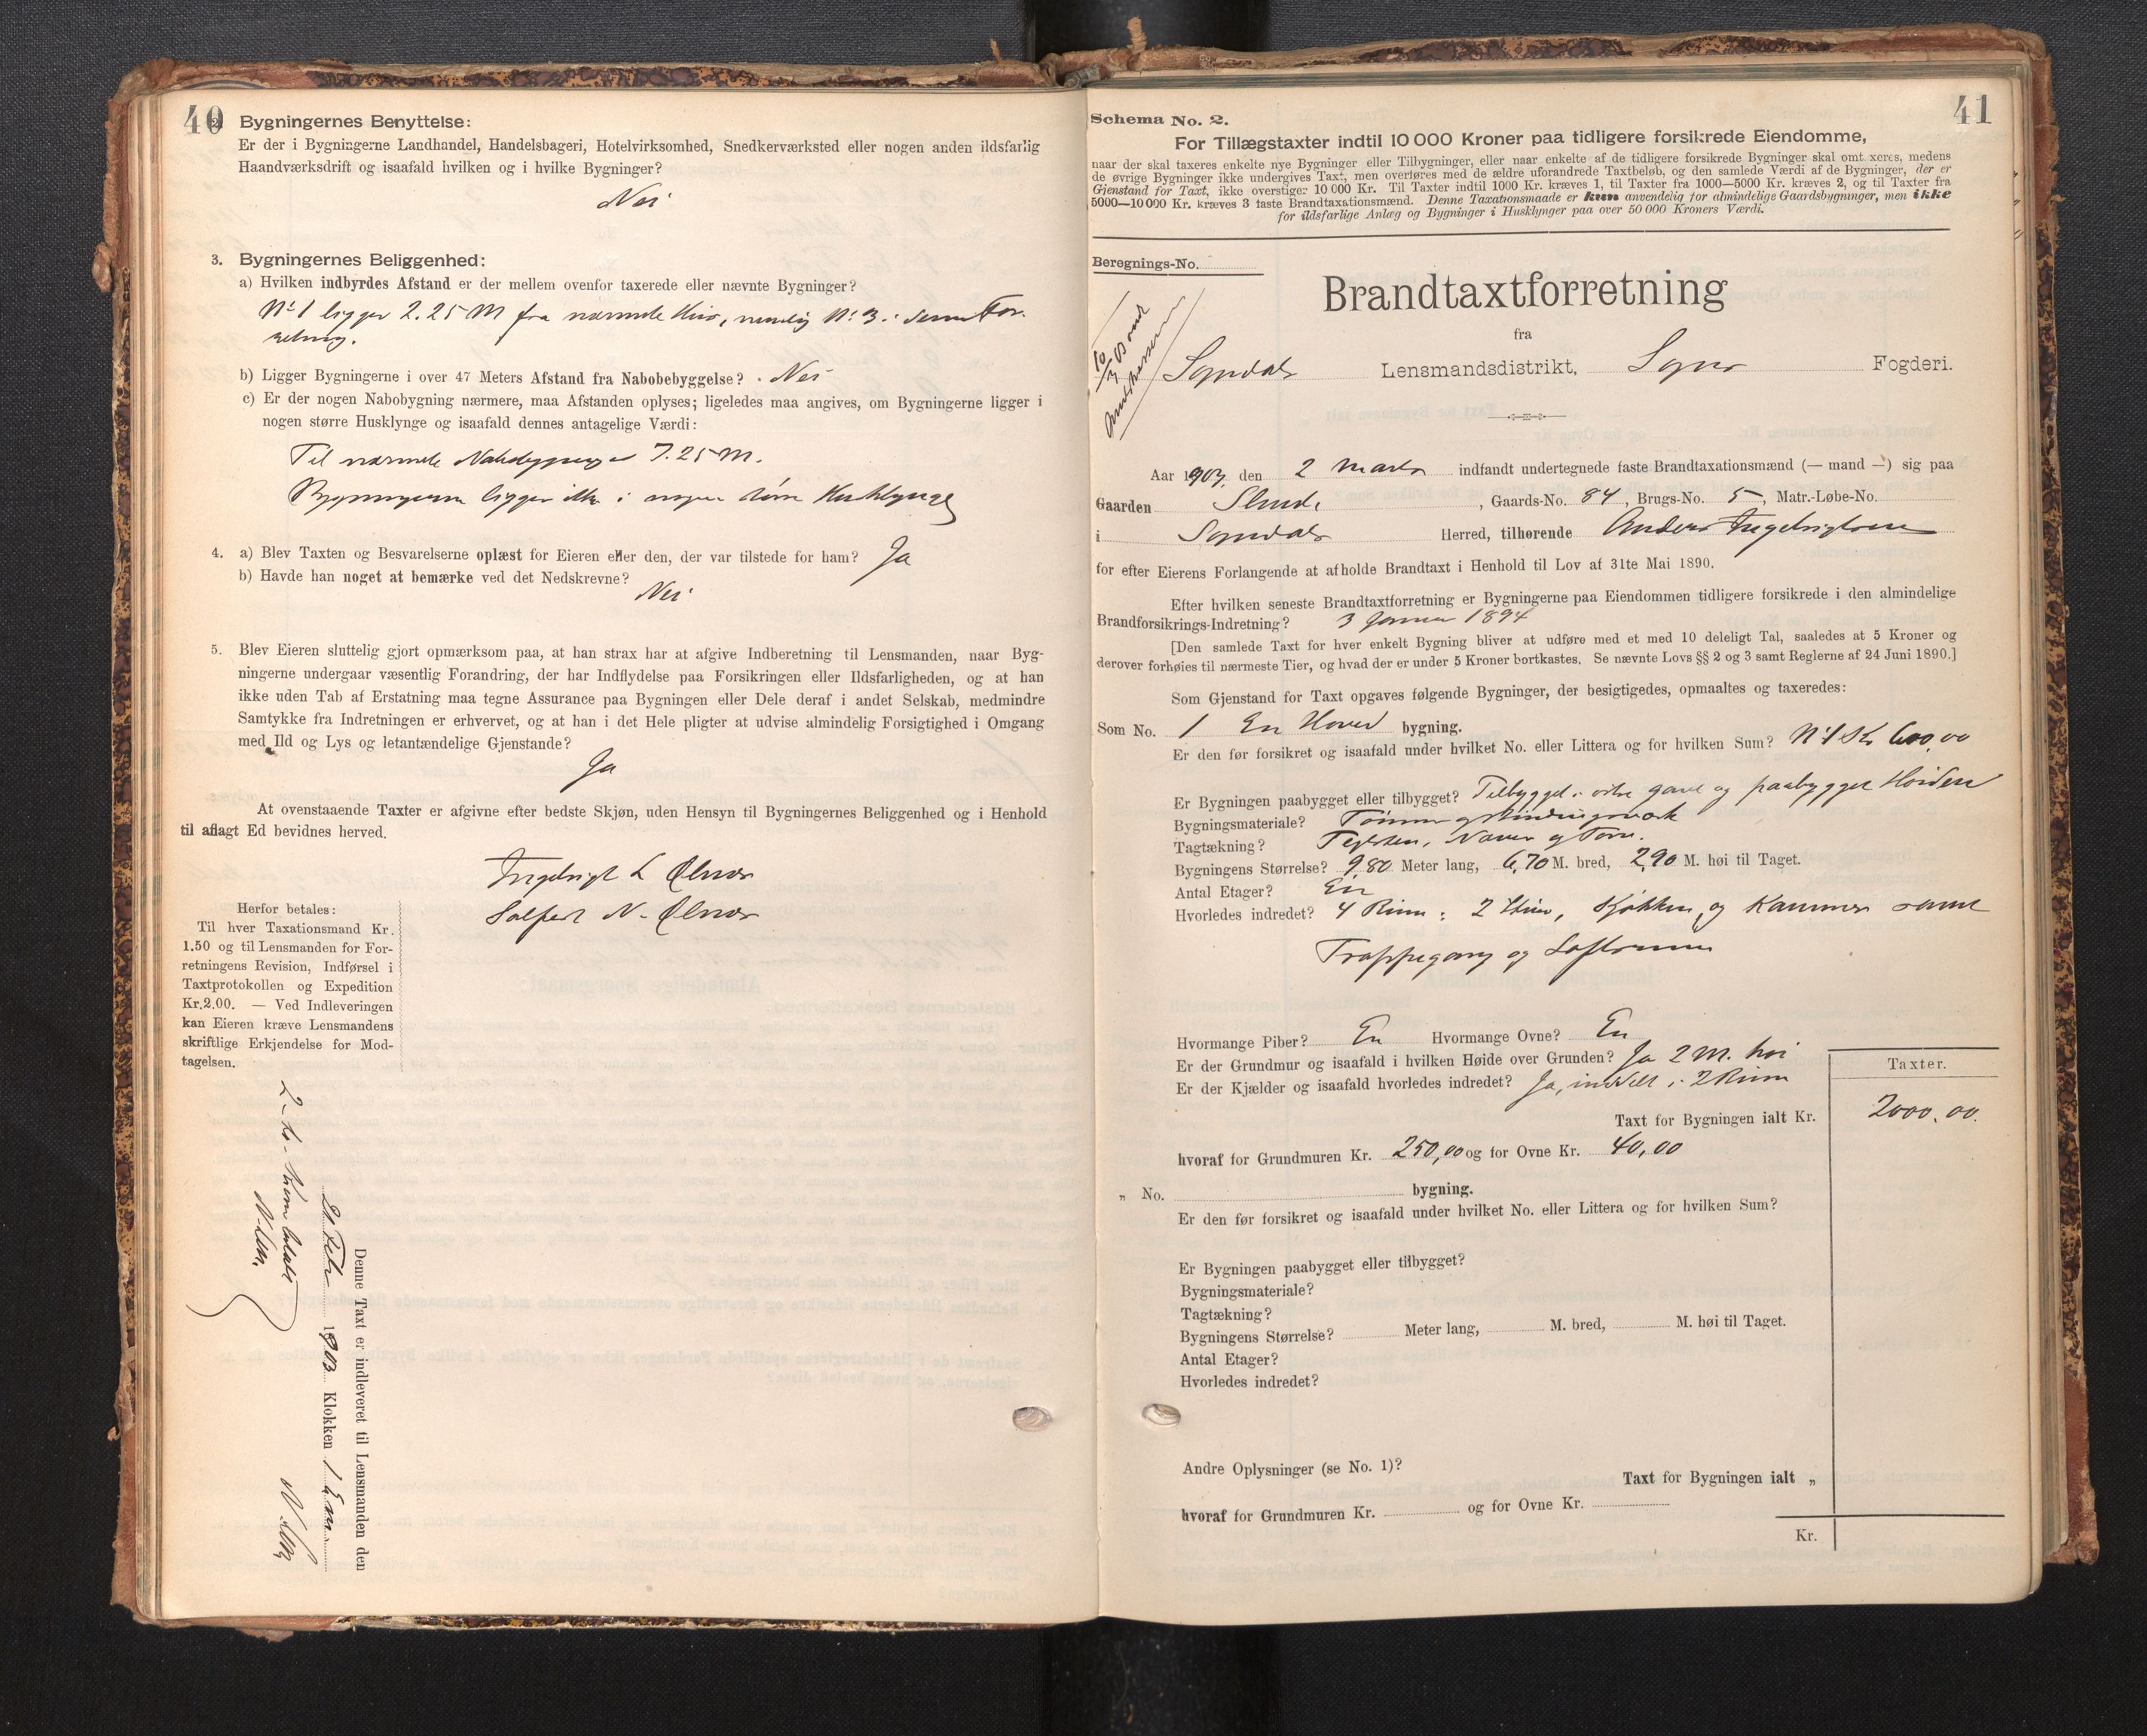 40
2. Bygningernes Benyttelse:
Er der i Bygningerne Landhandel, Handelsbageri, Hotelvirksomhed, Snedkerværksted eller nogen anden ildsfarlig
Haandværksdrift og isaafald hvilken og i hvilke Bygninger?
Nei
3. Bygningernes Beliggenhed:
a) Hvilken indbyrdes Afstand er der mellem ovenfor taxerede eller nævnte Bygninger?
No 1 ligger 2.25 M fra nærmeste Hus, nemlig No 3 i denne For-
retning.
b) Ligger Bygningerne i over 47 Meters Afstand fra Nabobebyggelse? Nei
c) Er der nogen Nabobygning nærmere, maa Afstanden oplyses; ligeledes maa angives, om Bygningerne ligger i
nogen større Husklynge og isaafald dennes antagelige Værdi:
Til nærmeste Nabobygning 7.25 M.
Bygningerne ligger ikke i nogen større Husklynge
4. a) Blev Taxten og Besvarelserne oplæst for Eieren eller den, der var tilstede for ham? Ja
b) Havde han noget at bemærke ved det Nedskrevne?
Nei
5. Blev Eieren sluttelig gjort opmærksom paa, at han strax har at afgive Indberetning til Lensmanden, naar Byg-
ningerne undergaar væsentlig Forandring, der har Indflydelse paa Forsikringen eller Ildsfarligheden, og at han
ikke uden Tab af Erstatning maa tegne Assurance paa Bygningen eller Dele deraf i andet Selskab, medmindre
Samtykke fra Indretningen er erhvervet, og at han i det Hele pligter at udvise almindelig Forsigtighed i Omgang
med Ild og Lys og letantændelige Gjenstande?
Ja
At ovenstaaende Taxter er afgivne efter bedste Skjøn, uden Hensyn til Bygningernes Beliggenhed og i Henhold
til aflagt Ed bevidnes herved.
Ingebrigt L Ølnæs
N. Ølnæs
Herfor betales:
Til hver Taxationsmand Kr.
1.50 og til Lensmanden for For-
retningens Revision, Indførsel i
Taxtprotokollen og Expedition
Kr.2.00. — Ved Indleveringen
kan Eieren kræve Lensmandens
skriftlige Erkjendelse for Mod-
tagelsen.
Denne Taxt er indleveret til Lensmanden den
1903 Klokken 1
2 Kr.
41
Schema No. 2.
For Tillægstaxter indtil 10 000 Kroner paa tidligere forsikrede Eiendomme,
naar der skal taxeres enkelte nye Bygninger eller Tilbygninger, eller naar enkelte af de tidligere forsikrede Bygninger skal omt xeres, medens
de øvrige Bygninger ikke undergives Taxt, men overføres med de ældre uforandrede Taxtbeløb, og den samlede Værdi af de Bygninger, der er
Gjenstand for Taxt, ikke overstiger 10 000 Kr. Til Taxter indtil 1000 Kr. kræves 1, til Taxter fra 1000—5000 Kr. kræves 2, og til Taxter fra
5000—10 000 Kr. kræves 3 faste Brandtaxationsmænd. Denne Taxationsmaade er kun anvendelig for almindelige Gaardsbygninger, men ikke
for ildsfarlige Anlæg og Bygninger i Husklynger paa over 50 000 Kroners Værdi.
Beregnings-No.
10/3 03
Brandtaxtforretning
fra
Sogndals Lensmandsdistrikt, Sogns Fogderi.
Aar 1903, den 2 Marts indfandt undertegnede faste Brandtaxationsmænd (— mand —) sig paa
Gaarden Stende, Gaards-No. 84, Brugs-No. 5, Matr.-Løbe-No.
i Sogndals Herred, tilhørende Anders Ingebrigtsen
for efter Eierens Forlangende at afholde Brandtaxt i Henhold til Lov af 31te Mai 1890.
Efter hvilken seneste Brandtaxtforretning er Bygningerne paa Eiendommen tidligere forsikrede i den almindelige
Brandforsikrings-Indretning? 3 Januar 1894
[Den samlede Taxt for hver enkelt Bygning bliver at udføre med et med 10 deleligt Tal, saaledes at 5 Kroner og
derover forhøies til nærmeste Tier, og hvad der er under 5 Kroner bortkastes. Se nævnte Lovs §§ 2 og 3 samt Reglerne af 24 Juni 1890.]
Som Gjenstand for Taxt opgaves følgende Bygninger, der besigtigedes, opmaaltes og taxeredes:
Som No. 1 En Hoved bygning.
Er den før forsikret og isaafald under hvilket No. eller Littera og for hvilken Sum? No 1 Kr 600,00
Er Bygningen paabygget eller tilbygget? Tilbygget i østre gavl og paabygget Høiden
Bygningsmateriale? Tømmer og bindingsværk
Tagtækning? Teglsten, Næver og Torv.
Bygningens Størrelse? 9,80 Meter lang, 6,70 M. bred, 2,90 M. høi til Taget.
Antal Etager? En
Hvorledes indredet? 4 Rum: 2 Stuer, Kjøkken og Kammer samt
Trappegang og Loftsrum
Hvormange Piber? En Hvormange Ovne? En
Er der Grundmur og isaafald i hvilken Høide over Grunden? Ja 2 M. høi
Er der Kjælder og isaafald hvorledes indredet? Ja, inddelt i 2 Rum
Taxter.
Taxt for Bygningen ialt Kr. 2000,00.
hvoraf for Grundmuren Kr. 250,00 og for Ovne Kr. 40,00
„ No. bygning.
Er den før forsikret og isaafald under hvilket No. eller Littera og for hvilken Sum?
Er Bygningen paabygget eller tilbygget?
Bygningsmateriale?
Tagtækning?
Bygningens Størrelse? Meter lang, M. bred, M. høi til Taget.
Antal Etager?
Hvorledes indredet?
Andre Oplysninger (se No. 1)?
Taxt for Bygningen ialt „
hvoraf for Grundmuren Kr. og for Ovne Kr.
Kr.